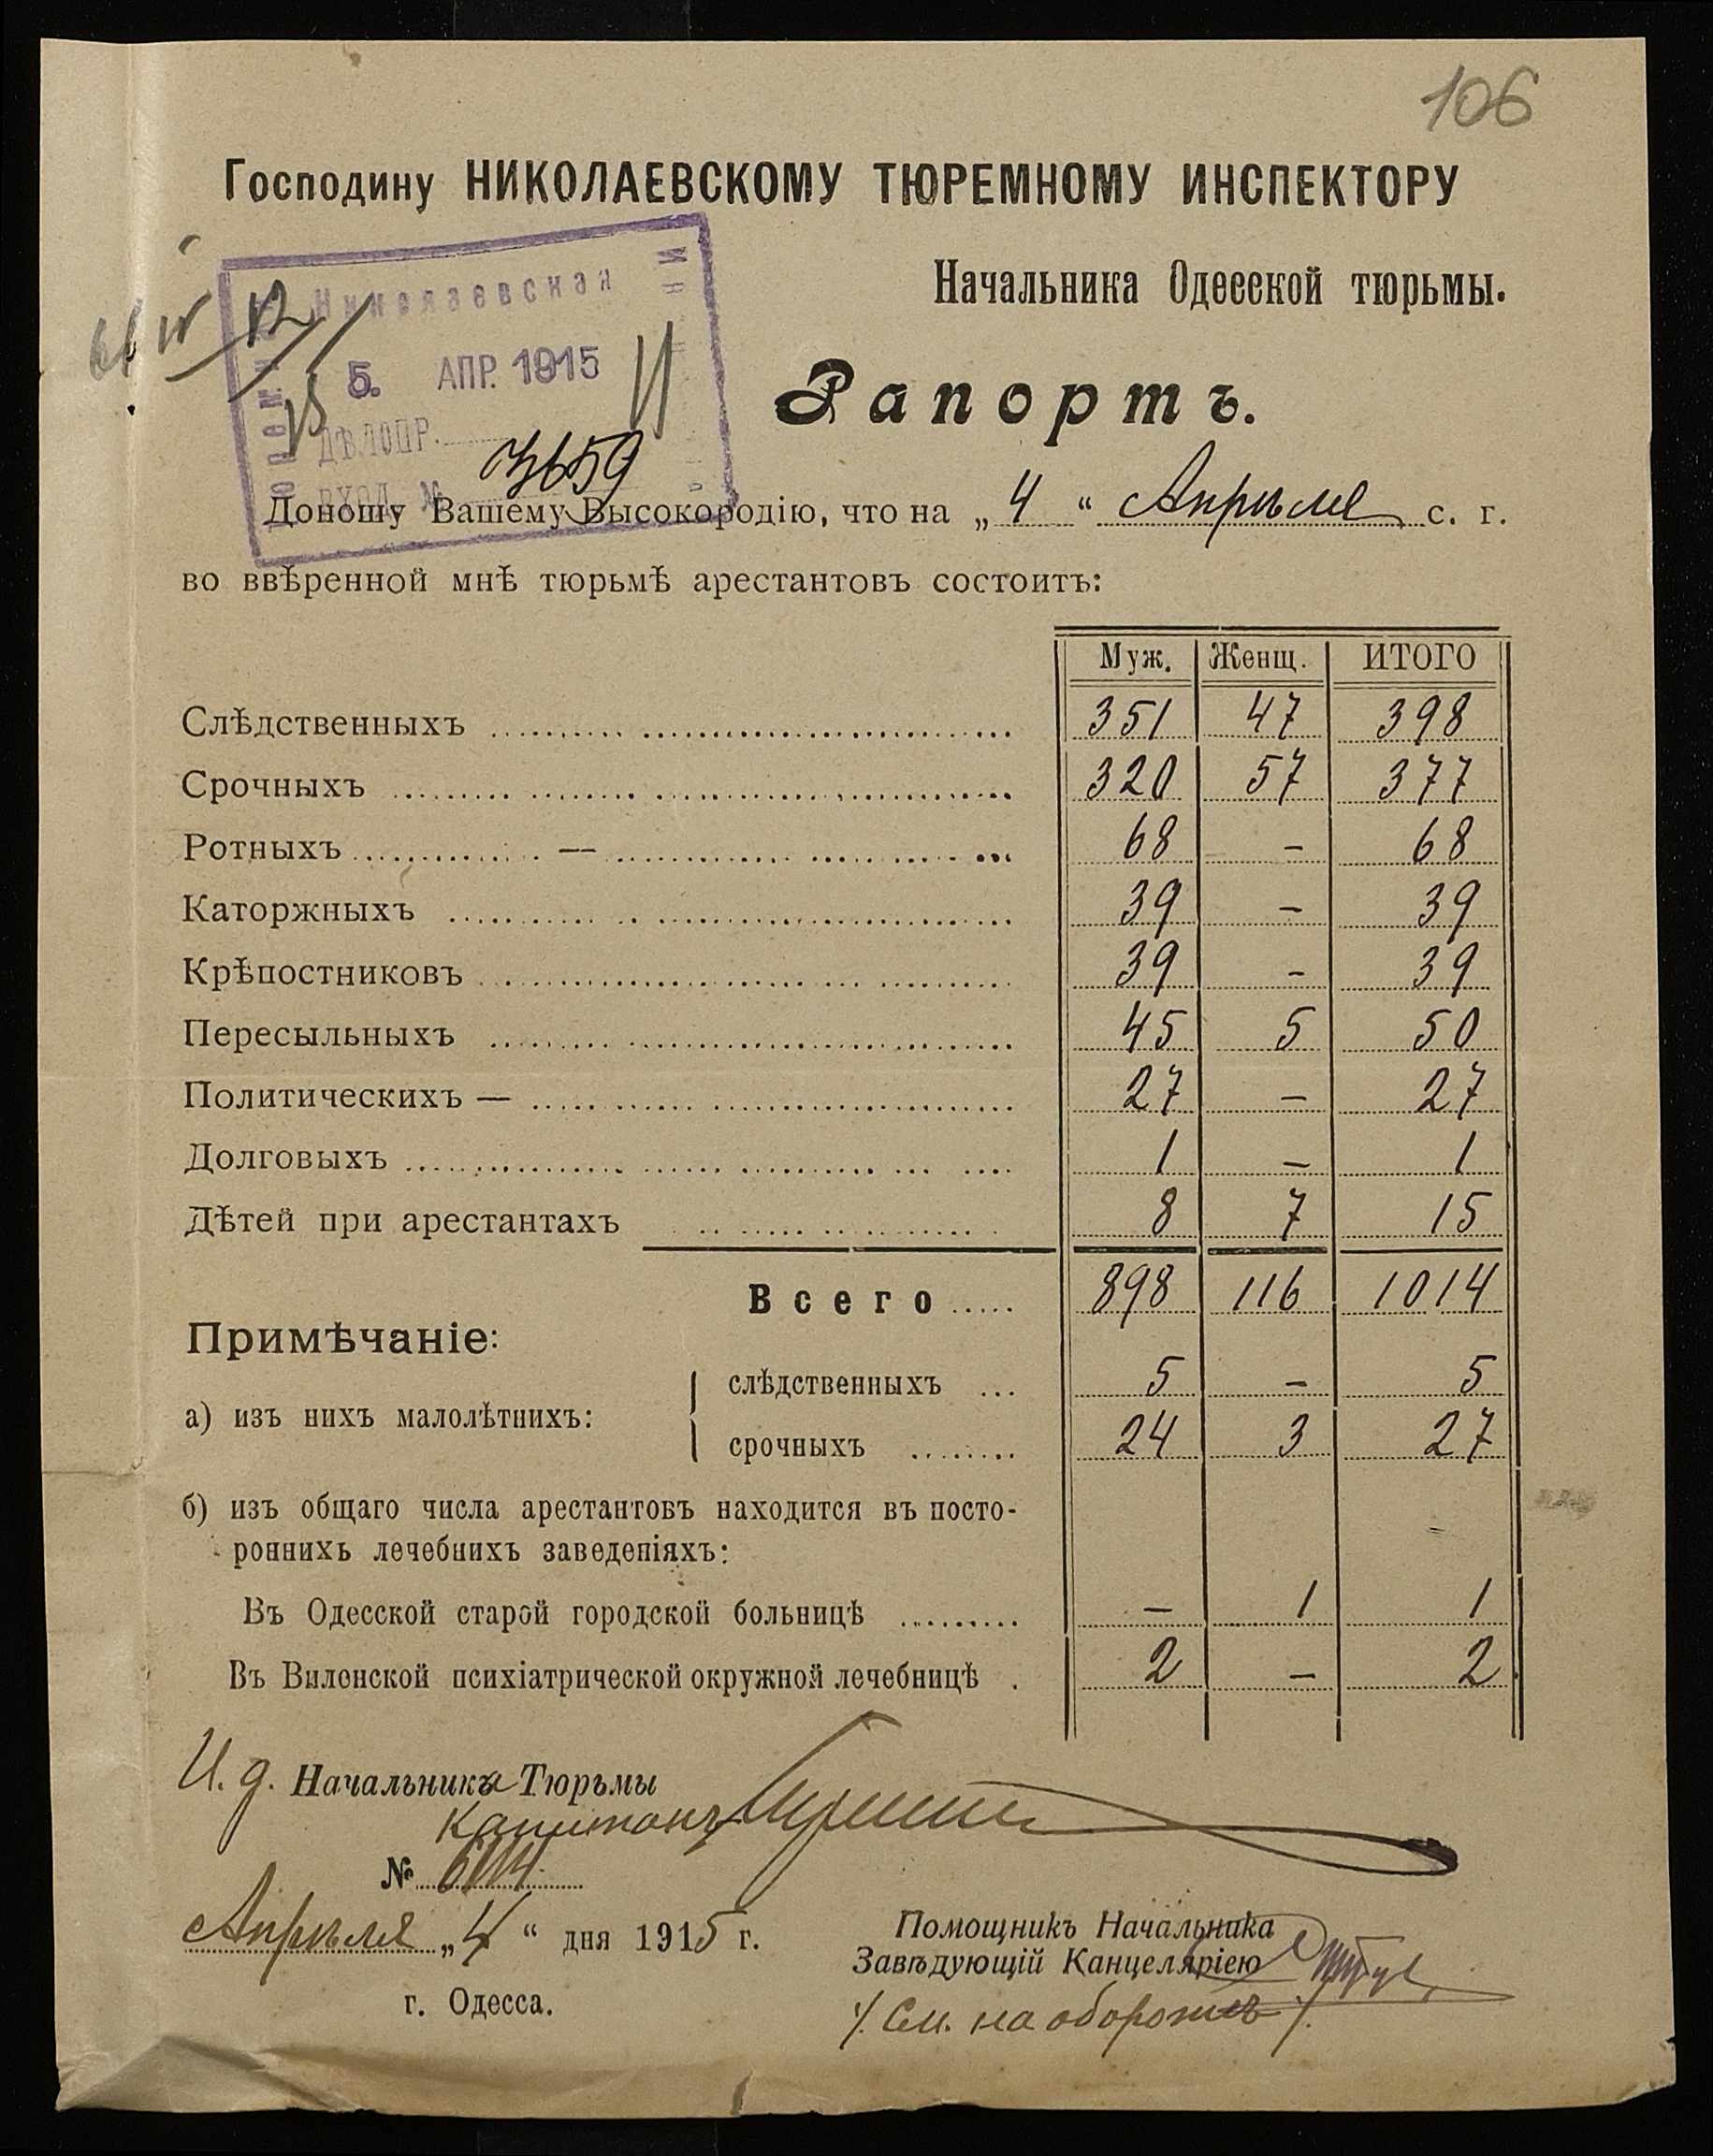 106
Господину НИКОЛАЕВСКОМУ ТЮРЕМНОМУ ИНСПЕКТОРУ
Начальника Одесской тюрьмы.
Николаевская
5. АПР. 1915
ДѢЛОПР.
ВХОД. №
3659
Рапортъ.
Доношу Вашему Высокородію, что на „4“ Апрѣля с. г.
во ввѣренной мнѣ тюрьмѣ арестантовъ состоитъ:
Муж. Женщ. ИТОГО
Слѣдственныхъ 351 47 398
Срочныхъ 320 57 377
Ротныхъ — 68 - 68
Каторжныхъ 39 - 39
Крѣпостниковъ 39 - 39
Пересыльныхъ 45 5 50
Политическихъ — 27 - 27
Долговыхъ 1 - 1
Дѣтей при арестантахъ 8 7 15
Всего 898 116 1014
Примѣчаніе:
а) изъ нихъ малолѣтнихъ:
слѣдственныхъ 5 - 5
срочныхъ 24 3 27
б) изъ общаго числа арестантовъ находится въ посто-
роннихь лечебнихъ заведеніяхъ:
Въ Одесской старой городской больницѣ - 1 1
Въ Виленской психіатрической окружной лечебницѣ 2 - 2
И. д. Начальника Тюрьмы
Капитанъ
№
Апрѣля „4“ дня 1915 г.
г. Одесса.
Помощникъ Начальника
Завѣдующій Канцеляріею
/. См. на оборотѣ /.